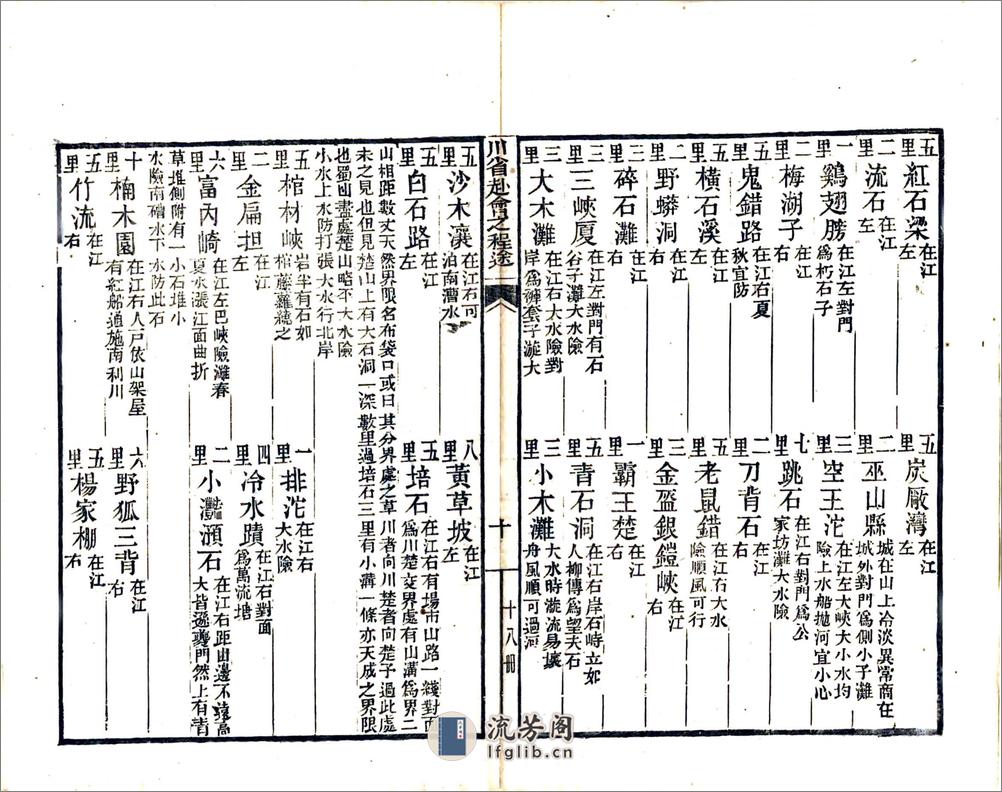 五里 紅石梁 在江左
五里 炭厰灣 在江左
二里 流石 在江左
二里 巫山縣 城在山上冷淡異常商在城外對門為側小子灘
一里 鷄翅膀 在江左對門為朽石子
三里 空王沱 在江左大峽大小水均險上水船拋河宜小心
二里 梅湖子 在江右
七里 跳石 在江右對門為公家坊灘大水險
五里 鬼錯路 在江右夏秋宜防
二里 刀背石 在江右
三里 橫石溪 在江左
五里 老鼠錯 在江右大水險順風可行
二里 野蟒洞 在江右
三里 金盔銀鎧峽 在江右
三里 碎石灘 在江右
一里 霸王楚 在江右
三里 三峽厦 在江左對門有石谷子灘大水險
五里 青石洞 在江右岸石峙立如人柳傳為望夫石
三里 大木灘 在江右大水險對岸為褲套子漩大
三里 小木灘 大水時漩流易壞舟風順可過河
川省赴會之程途
十
十八冊
五里 沙木瀼 在江右可泊南漕水
八里 黃草坡 在江左
五里 白石路 在江左
五里 培石 在江右有場市山路一綫對面為川楚交界處有山溝為界二
山相距數丈天然界限名布袋口或曰其分界處之草川者向川楚者向楚予過此處
未之見也但見楚山上有大石洞一深數里過培石三里有小溝一條亦天成之界限
也蜀山盡處楚山略不大水險
小水上水防打張大水行北岸
五里 棺材峽 岩半有石如棺藤蘿繞之
一里 排沱 在江右大水險
二里 金扁担 在江左
四里 冷水蹟 在江右對面為萬流塘
六里 富內崎 在江左巴峽險灘春夏水漲江面曲折
二里 小灎澦石 在江右距山邊不遠高大皆遜夔門然上有青
草堆側附有一小石堆小
水險南磧水下水防此石
十里 楠木園 在江右人戸依山架屋有紅船通施南利川
六里 野狐三背 在江右
五里 竹流 在江右
五里 楊家棚 在江右
流芳阁
lfglib.cn